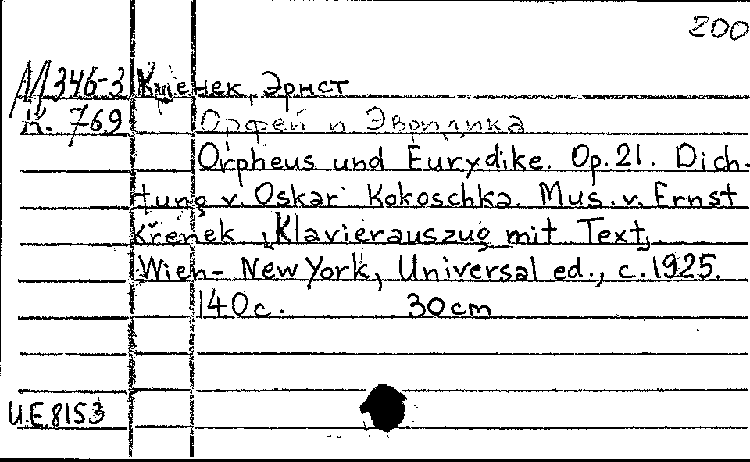 200
М346-3 Кшенек, Эрнст
К. 769 Орфей и Эвридика
Orpheus und Eurydike. Op.21. Dich-
tung v. Oskar Kokoschka. Mus. v. Ernst
Křenek, Klavierauszug mit Text,
Wien - New York, Universal ed., c.1925.
140c. 30cm
U.E.8153